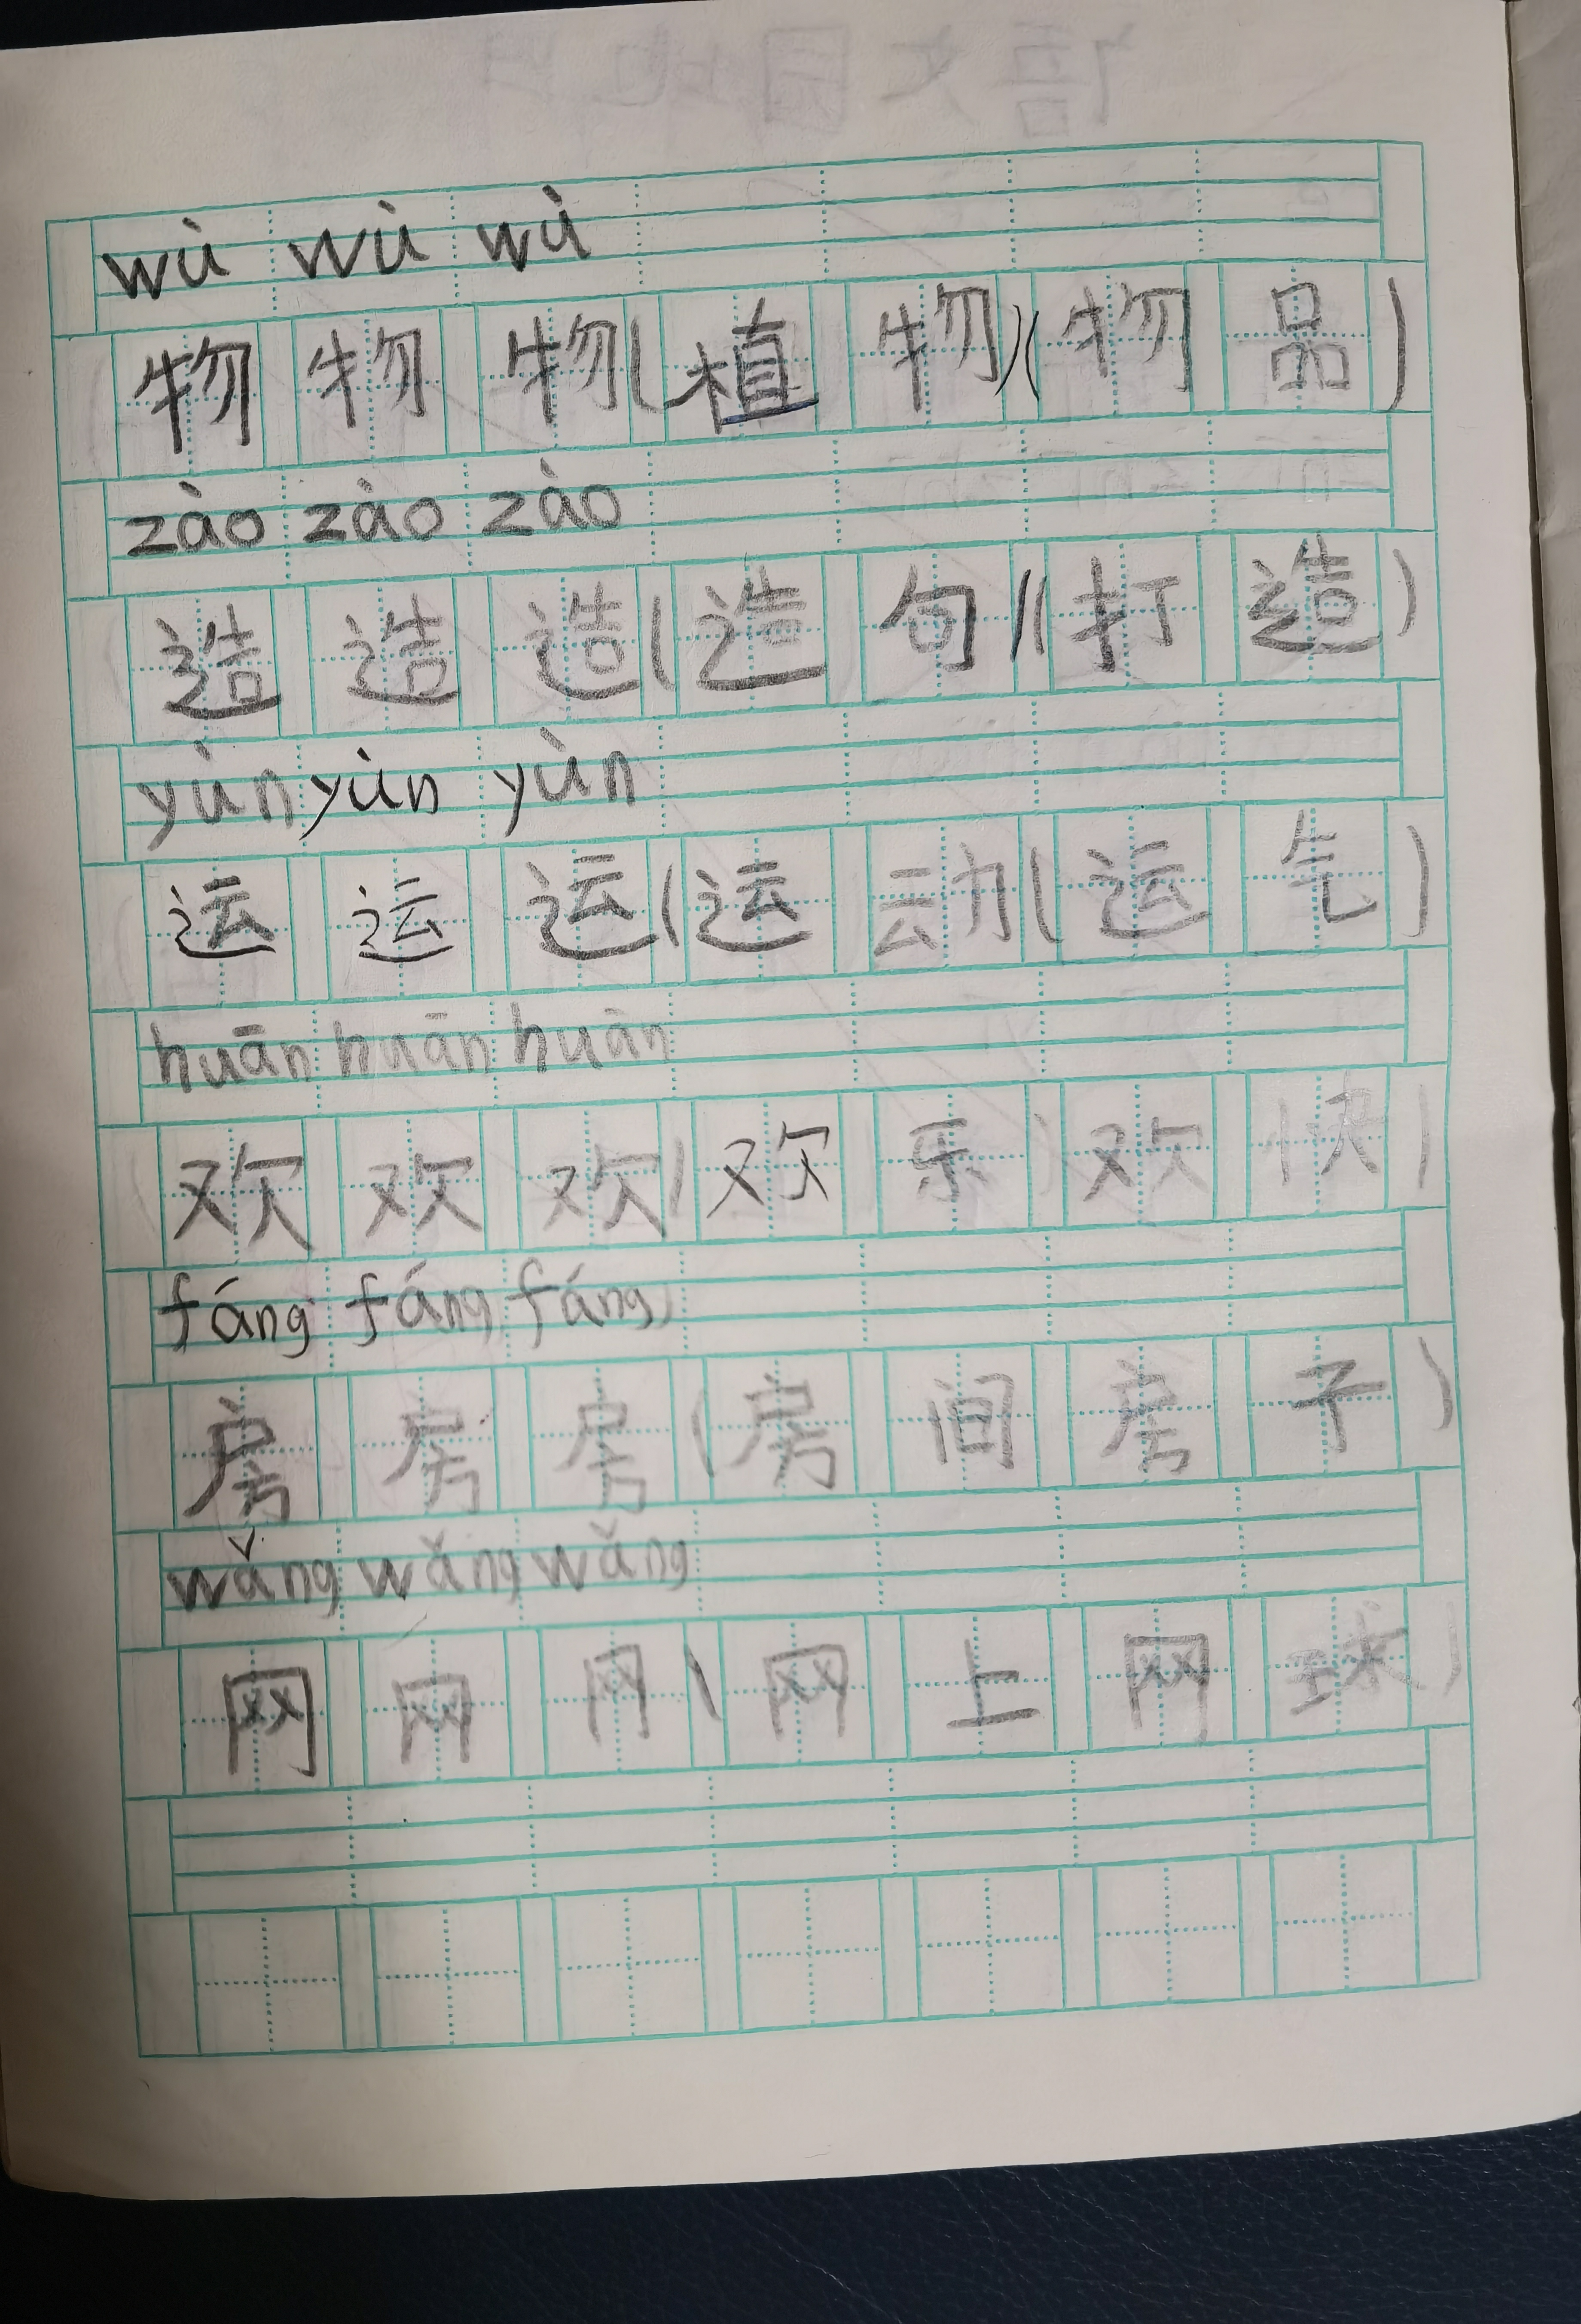 wù wù wù
物 物 物(植 物)(物 品)
zào zào zào
造 造 造(造 句)(打 造)
yùn yùn yùn
运 运 运(运 动(运 气)
huān huān huān
欢 欢 欢)欢 乐)欢 快)
fáng fáng fáng
房 房 房(房 间 房 子)
wǎng wǎng wǎng
网 网 网)网 上 网 球)